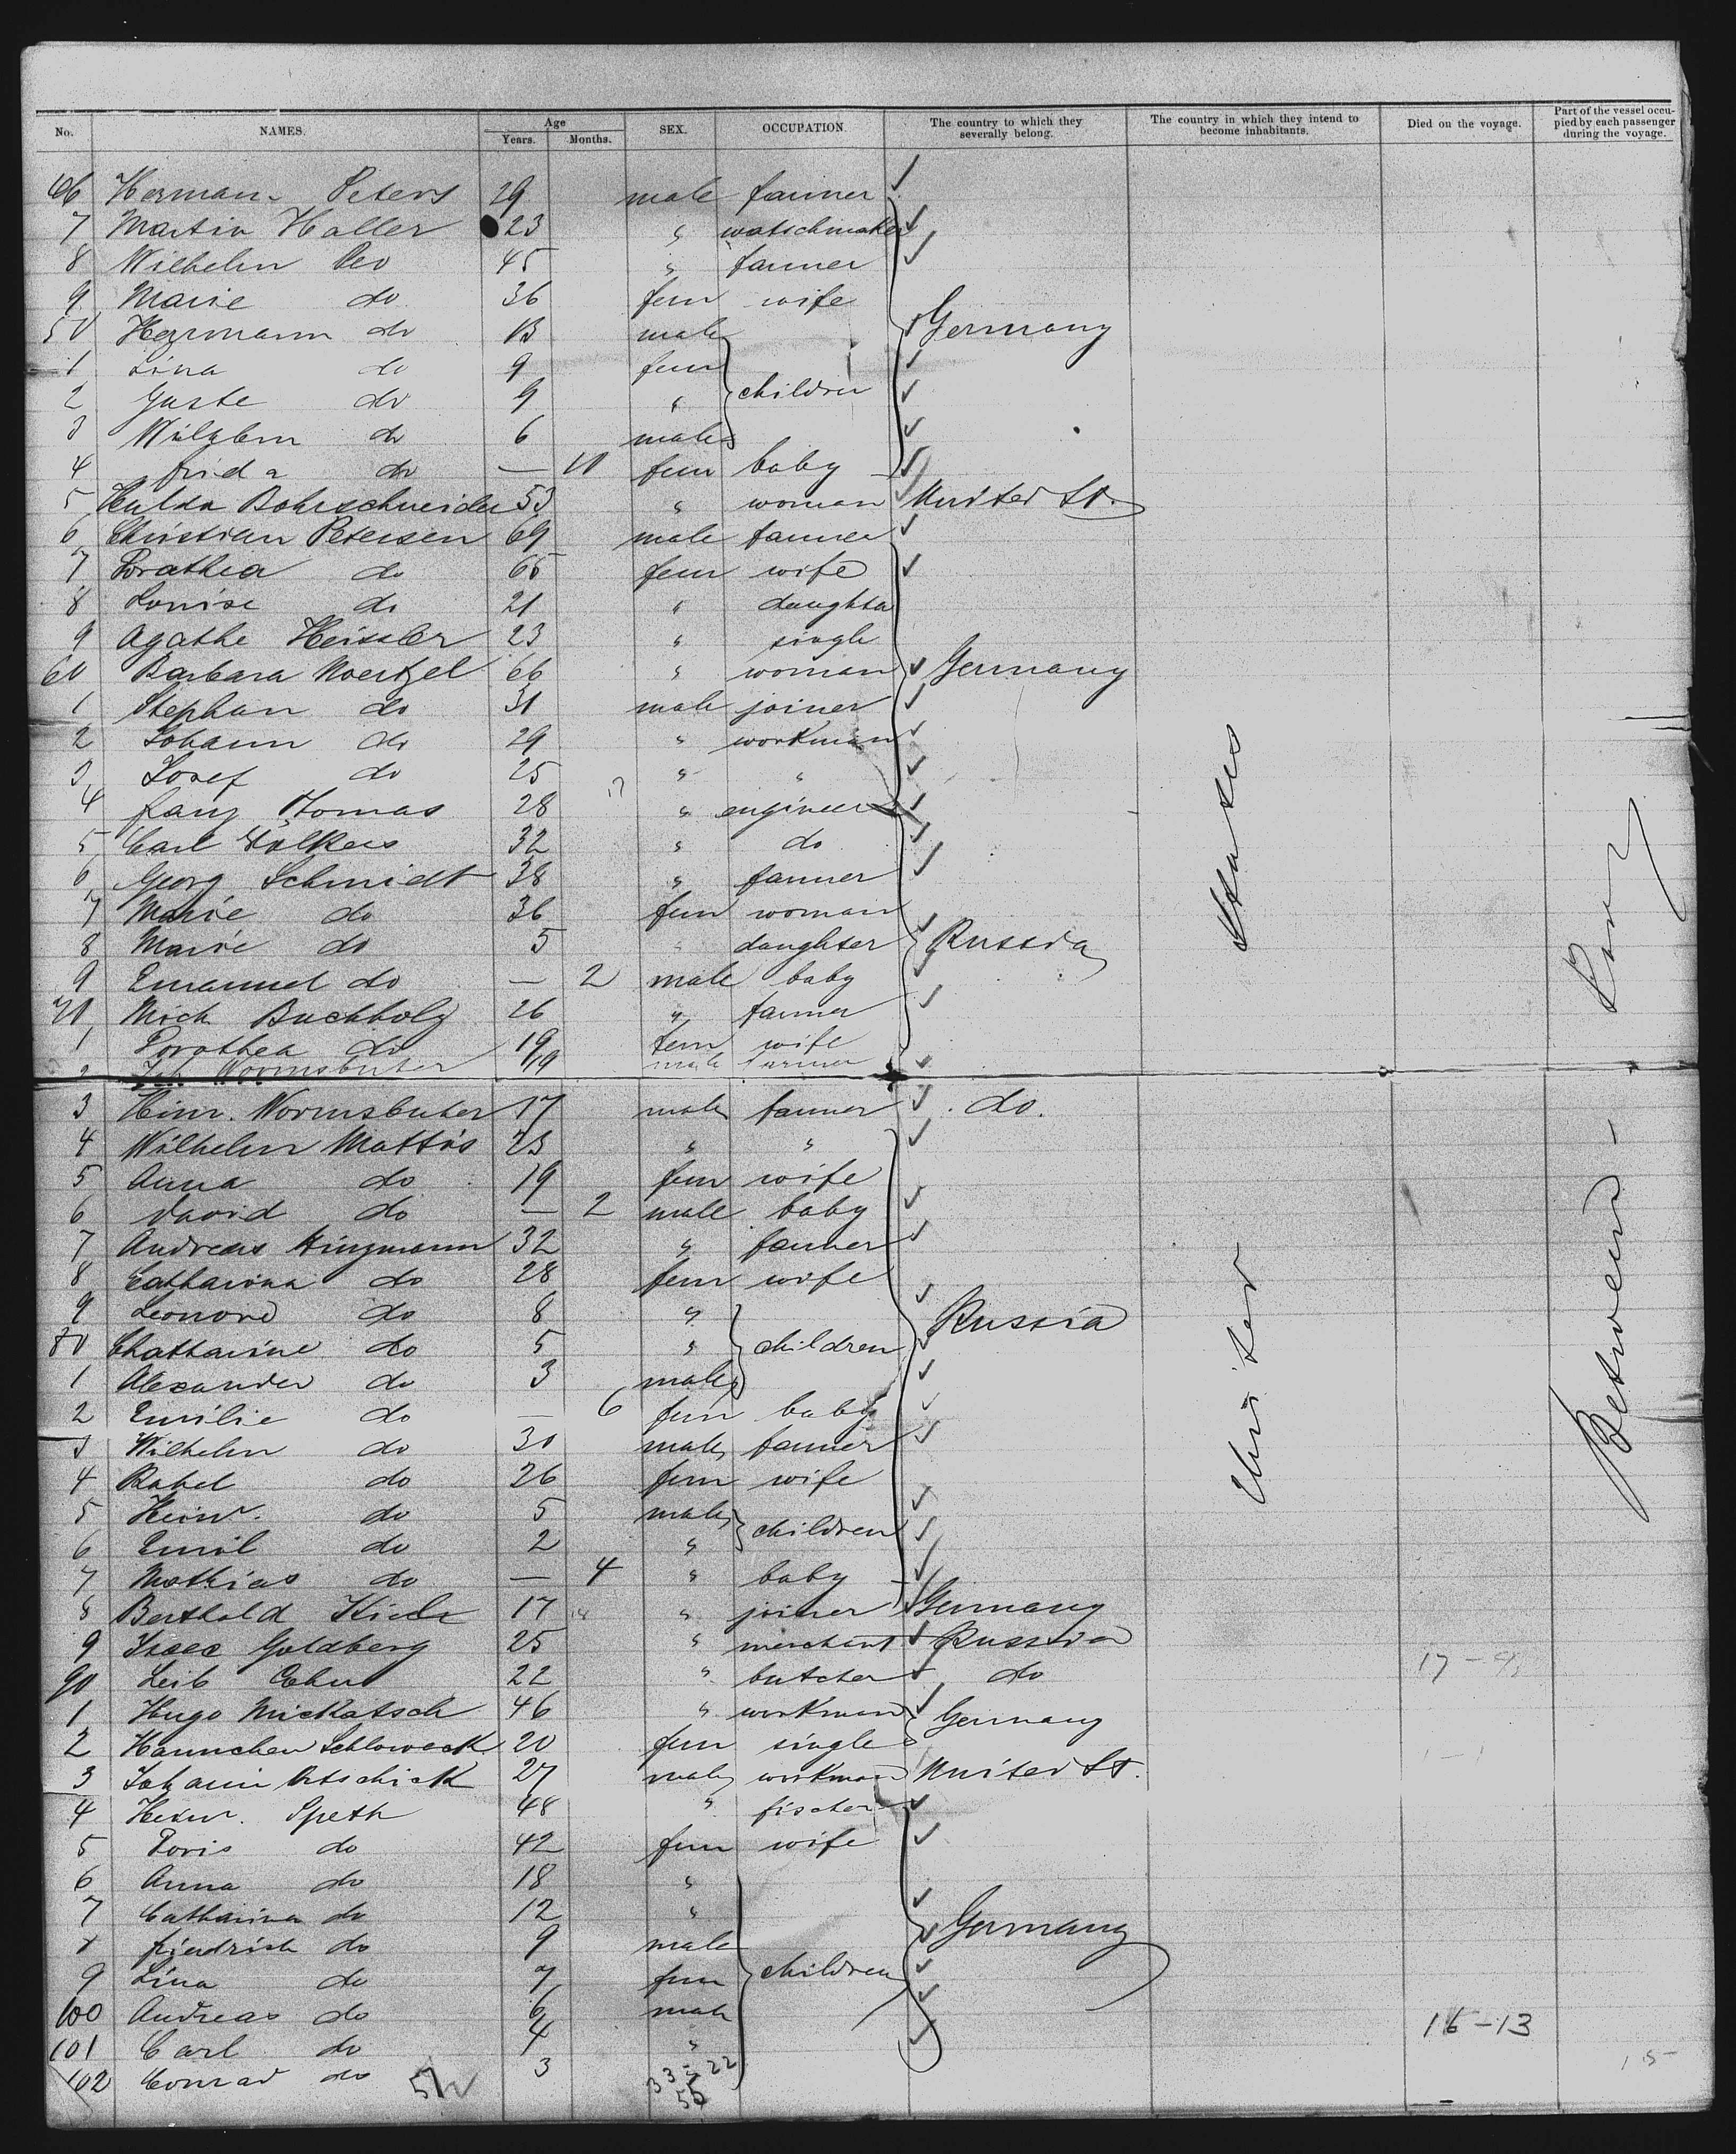 No. NAMES. Age Years. Months. SEX. OCCUPATION. The country to which they severally belong. The country in which they intend to become inhabitants. Died on the voyage. Part of the vessel occupied by each passenger during the voyage.
46 Herman Peters 29 male farmer
7 Martin Haller 23 " watschmaker
8 Wilhelm Peo 45 " farmer
9 Marie do 36 fem wife
50 Herrmann do 13 male Germany
1 Lina do 9 fem
2 Guste do 9 " children
3 Wilhelm do 6 male
4 frida do — 10 fem baby
5 Hulda Bohrschneider 53 " woman United St.
6 Christian Petersen 69 male farmer
7 Dorathea do 65 fem wife
8 Louise do 21 " daughter
9 Agathe Heissler 23 " single
60 Barbara Noertzel 66 " woman Germany
1 Stephan do 31 male joiner
2 Johann do 29 " workman
3 Josef do 25 " "
4 franz Thomas 28 " engineer
5 Carl Fölkers 32 " do
6 Georg Schmidt 38 " farmer
7 Marie do 36 fem woman
8 Marie do 5 " daughter Russia
9 Emanuel do — 2 male baby
70 Mich Buchholz 26 " farmer
1 Dorothea do 19 fem wife
2 Joh Wormsbuher 49 male farmer
3 Heinr. Wormsbuher 17 male farmer do.
4 Wilhelm Mattis 23 " "
5 Anna do 19 fem wife
6 David do — 2 male baby
7 Andreas Hinzmann 32 " farmer
8 Catharina do 28 fem wife
9 Leonore do 8 " Russia
80 Chatharine do 5 " children
1 Alexander do 3 male
2 Emilie do — 6 fem baby
3 Wilhelm do 30 male farmer
4 Rahel do 26 fem wife
5 Heinr. do 5 male children
6 Emil do 2 "
7 Mathias do — 4 " baby
8 Berthold 17 " joiner Germany
9 Isaac Goldberg 25 " merchant Russia
90 Leib 22 " butcher do
1 Hugo Mickatsch 46 " workman Germany
2 Hannchen Schloweck 20 fem single
3 Johann Ortschick 27 male workman United St.
4 Heinr. Speth 48 " fischer
5 Doris do 42 fem wife
6 Anna do 18 "
7 Catharina do 12 "
8 friedrich do 9 male Germany
9 Lina do 7 fem children
100 Andreas do 6 male
101 Carl do 4 "
102 Conrad do 3 "
United States
Between
17 -
16-13
15
33 - 22